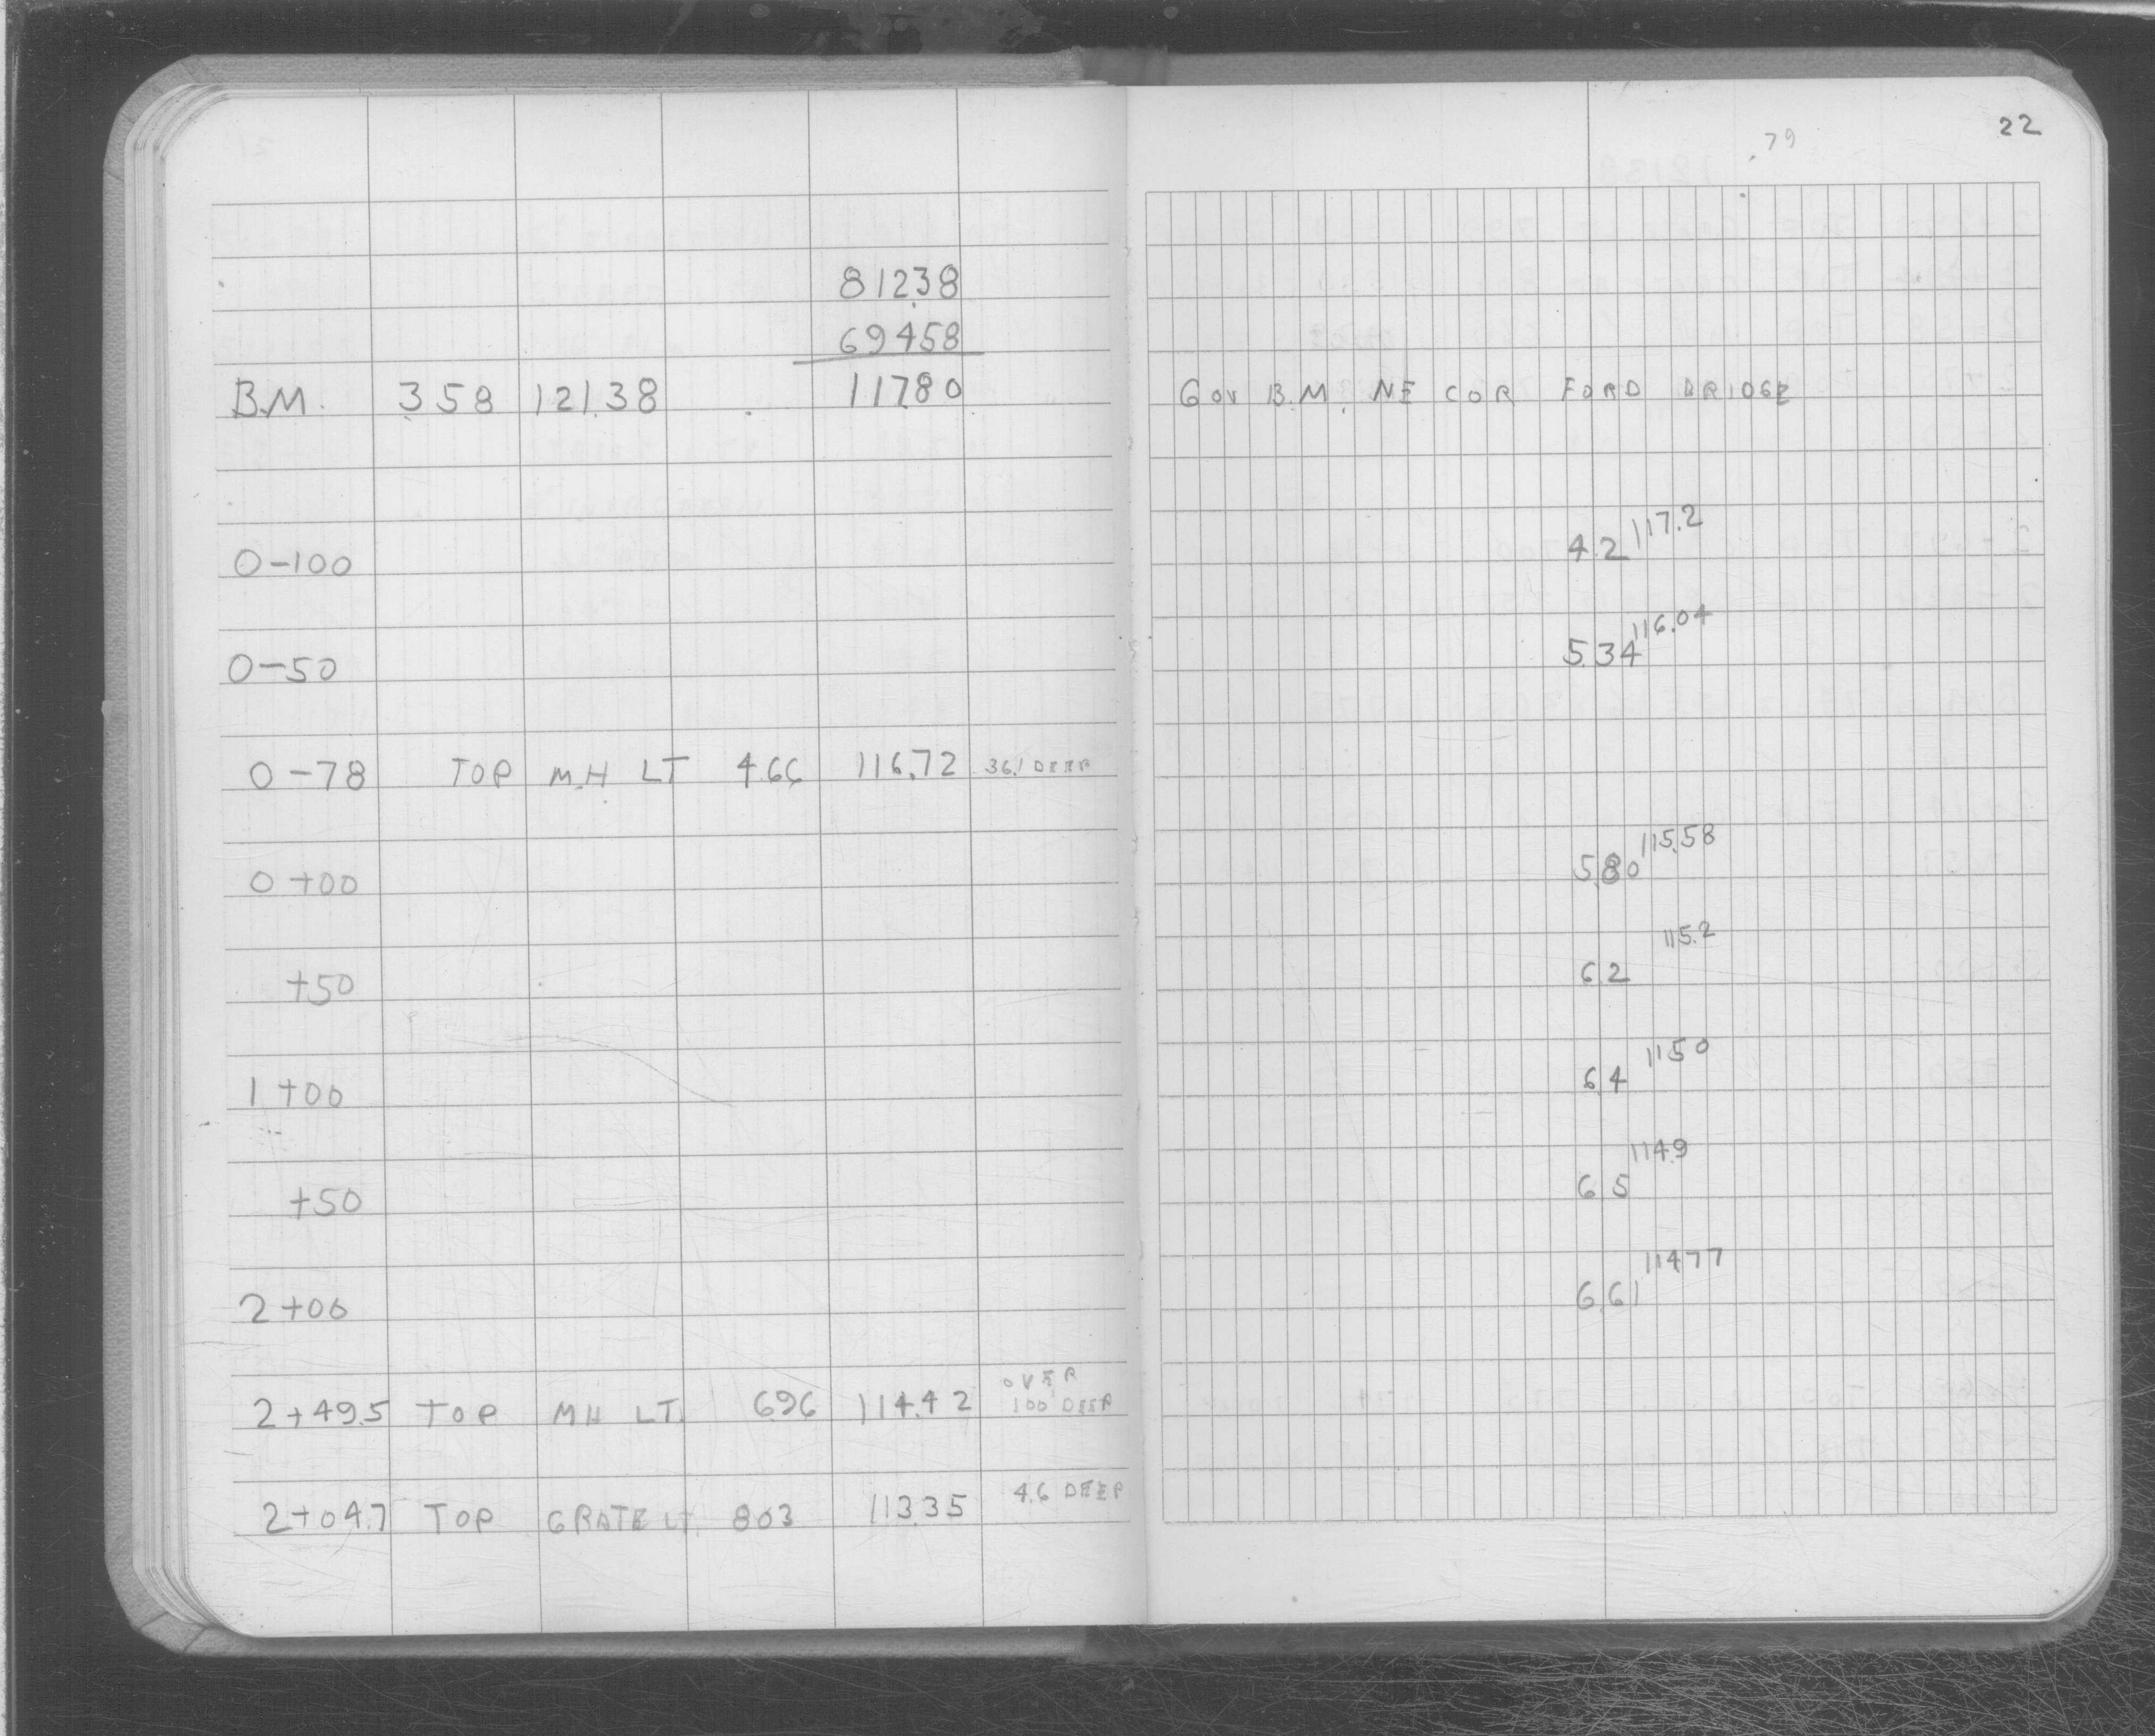 22
.79
812.38
694.58
B.M. 3.58 121.38 117.80 Gov B.M. NE COR FORD BRIDGE
0-100 4.2 117.2
0-50 5.34 116.04
0-78 TOP M.H LT 4.66 116.72 36.1 DEEP
0+00 5.80 115.58
+50 6.2 115.2
1+00 6.4 115.0
+50 6.5 114.9
2+00 6.61 114.77
2+49.5 TOP MH LT. 6.96 114.42 OVER 100 DEEP
2+04.7 TOP GRATE LT. 8.03 113.35 4.6 DEEP